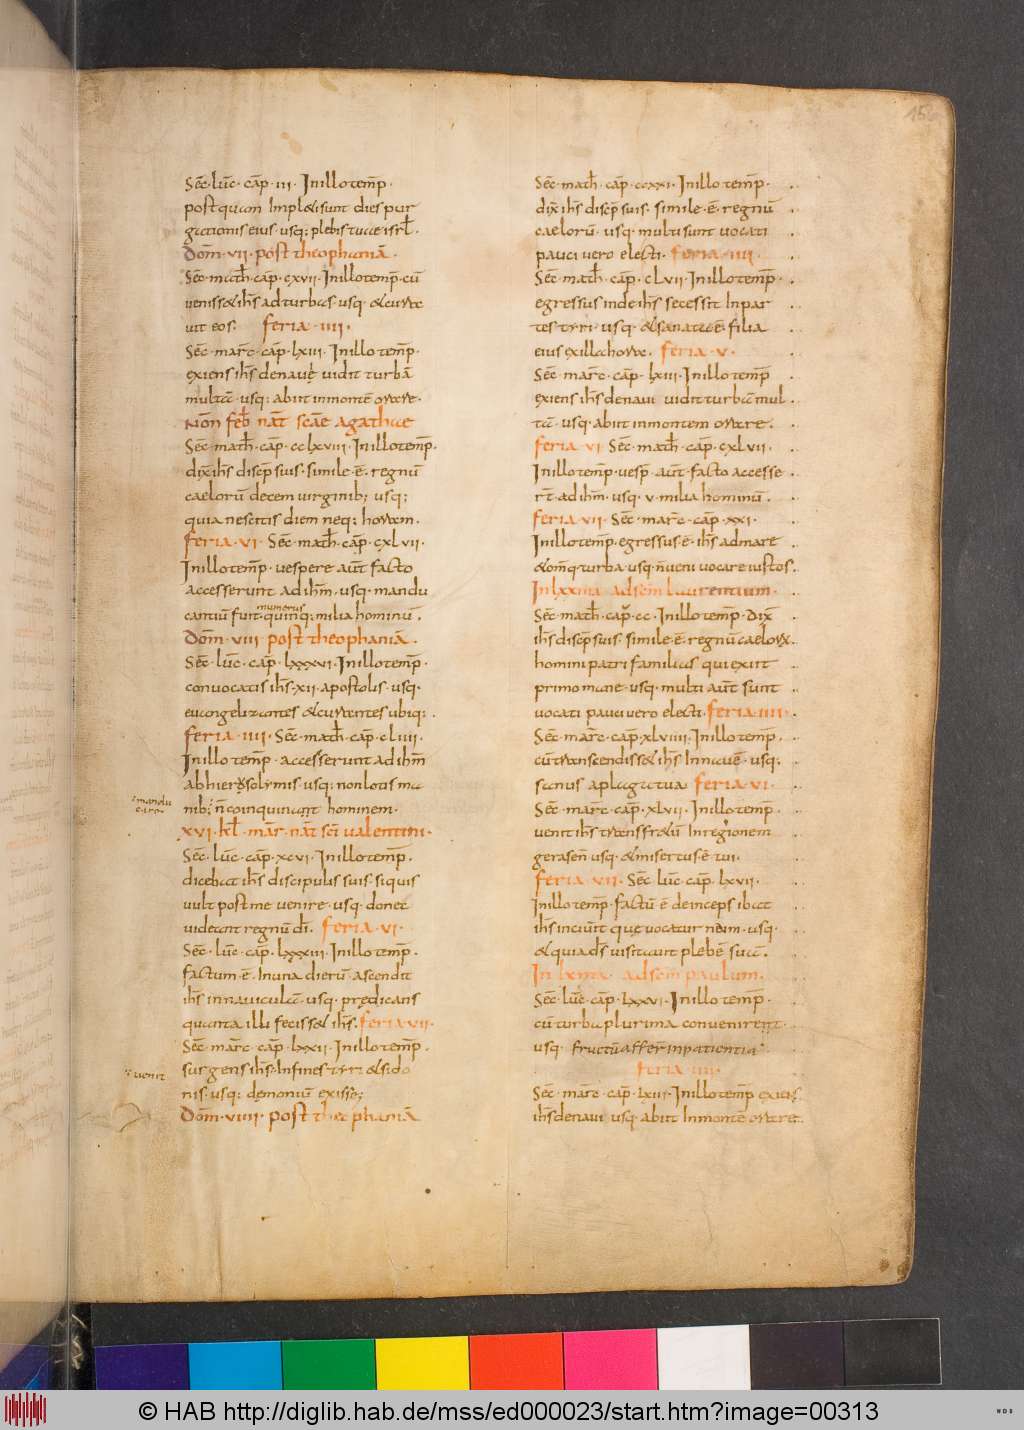 Sec̄ · luc̄ · cap̄ · iii · In illo temp̄ ·
postquam impl&i sunt dies pur
gationis eius · usq; plebis tuae isrl̄ ·
Dom̄ · vii · post theophaniā ·
Sec̄ · math̄ · cap̄ · cxvii · In illo temp̄ · cū
veniss& ih̄s ad turbas · usq · & cura
uit eos · feria · iiii ·
Sec̄ · marc̄ · cap̄ · lxiii · In illo temp̄ ·
exiens ih̄s de naue vidit turbā
multā · usq; abiit in montē orare ·
Non̄ feb̄ nat̄ scāe agathae
Sec̄ · math̄ · cap̄ · cclxviii · In illo temp̄ ·
dix̄ ih̄s discip̄ suis · simile · ē · regnū
caelorū decem virginib; usq;
quia nescitis diem neq; horam ·
feria · vi · Sec̄ · math̄ · cap̄ · cxlvii ·
In illo temp̄ · vespere aut̄ facto
accesserunt ad ihm̄ · usq · mandu
cantiū fuit · numerus quinq; milia hominū ·
Dom̄ · viii · post theophaniā ·
Sec̄ · luc̄ · cap̄ · lxxxvi · In illo temp̄ ·
convocatis ih̄s · xii · apostolis · usq ·
euangelizantes & curantes ubiq; ·
feria · iiii · Sec̄ · math̄ · cap̄ · cliiii ·
In illo temp̄ · accesserunt ad ihm̄
ab hierosolymis · usq; non lotis ma
nib; n̄ coinquinant hominem ·
mandu
care
xvi · kl̄ · mar̄ · nat̄ scī valentini ·
Sec̄ · luc̄ · cap̄ · xcvi · In illo temp̄ ·
dicebat ih̄s discipulis suis · si quis
vult post me venire · usq · donec
videant regnū dī · feria · vi ·
Sec̄ · luc̄ · cap̄ · lxxxiii · In illo temp̄ ·
factum · ē · In una dierū · ascendit
ih̄s in naviculā · usq · prędicans
quanta illi feciss& ih̄s · feria · vii ·
Sec̄ · marc̄ · cap̄ · lxxii · In illo temp̄ ·
surgens ih̄s · In fines tyri & sido
venit
nis · usq; dęmoniū exisse;
Dom̄ · viiii · post theophaniā
Sec̄ · math̄ · cap̄ · ccxxi · In illo temp̄ ·
dix̄ ih̄s discip̄ suis · simile · ē · regnū
caelorū · usq · multi sunt vocati
pauci vero electi · feria · iiii ·
Sec̄ · math̄ · cap̄ · clvii · In illo temp̄ ·
egressus inde ih̄s secessit In par
tes tyri · usq · & sanata ē · filia
eius ex illa hora · feria · v ·
Sec̄ · marc̄ · cap̄ · lxiii · In illo temp̄
exiens ih̄s de naui vidit turbā mul
tā · usq · abiit in montem orare ·
feria · vi · Sec̄ · math̄ · cap̄ · cxlvii ·
In illo temp̄ · vesp̄ · aut̄ · facto accesse
rt̄ · ad ihm̄ · usq · v · milia hominū ·
feria · vii · Sec̄ · marc̄ · cap̄ · xxi ·
In illo temp̄ · egressus · ē · ih̄s ad mare
& om̄q · turba · usq · n̄ veni vocare iustos ·
In lxxma · ad scm̄ laurentium ·
Sec̄ · math̄ · cap̄ · cc · In illo temp̄ · Dix̄
ih̄s discip̄ suis · simile · ē · regnū caelorx̄ ·
homini patri familias qui exiit
primo mane · usq · multi aut̄ sunt
vocati pauci vero electi · feria · iiii ·
Sec̄ · marc̄ · cap̄ · xlviiii · In illo temp̄ ·
cū transcendiss& ih̄s In nauē · usq;
sanus a plaga tua · feria · vi ·
Sec̄ · marc̄ · cap̄ · xlvii · In illo temp̄ ·
venit ih̄s trans fr&ū In regionem
gerasen̄ usq · & misertus · ē · tui ·
feria · vii · Sec̄ · luc̄ · cap̄ · lxvii ·
In illo temp̄ · factū · ē · deinceps ibat
ih̄s in ciuit̄ quę vocatur naim · usq ·
& quia ds̄ visitauit plebē suā ·
In lxma · ad scm̄ paulum ·
Sec̄ · luc̄ · cap̄ · lxxvi · In illo temp̄ ·
cū turba plurima convenirent
usq · fructū affer̄ in patientia ·
feria · iiii ·
Sec̄ · marc̄ · cap̄ · lxiii · In illo temp̄ exiens̄
ih̄s de naui usq · abiit In montē orare ·
© HAB http://diglib.hab.de/mss/ed000023/start.htm?image=00313